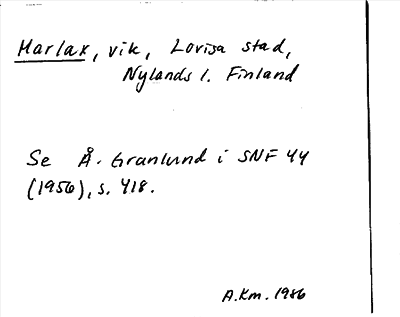 Harlax, vik, Lovisa stad,
Nylands l. Finland
Se Å. Granlund i SNF 44
(1956), s. 418.
A.Km. 1986